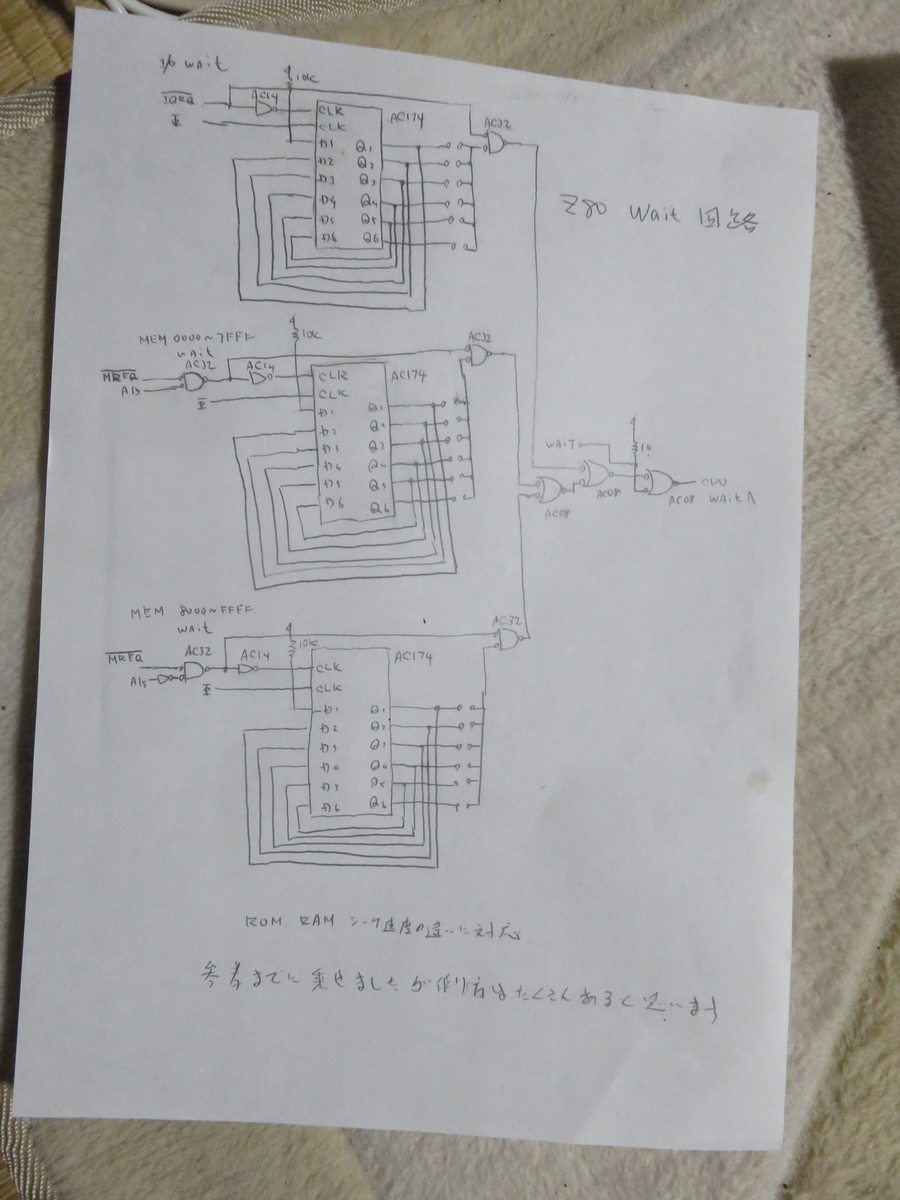 I/O wait
10K
IORQ
AC14
Φ
CLR
CLK
D1 Q1
D2 Q2
D3 Q3
D4 Q4
D5 Q5
D6 Q6
AC174
AC32
Z80 Wait 回路
MEM 0000~7FFF
wait
10K
MREQ
A15
AC32
AC14
Φ
CLR
CLK
D1 Q1
D2 Q2
D3 Q3
D4 Q4
D5 Q5
D6 Q6
AC174
AC32
WAIT
10
AC08
AC08
AC08
CPU
WAITへ
MEM 8000~FFFF
wait
10K
MREQ
A15
AC32
AC14
Φ
CLR
CLK
D1 Q1
D2 Q2
D3 Q3
D4 Q4
D5 Q5
D6 Q6
AC174
AC32
ROM RAM 速度の違いに対応
参考までに乗せましたが作り方はたくさんあると思います